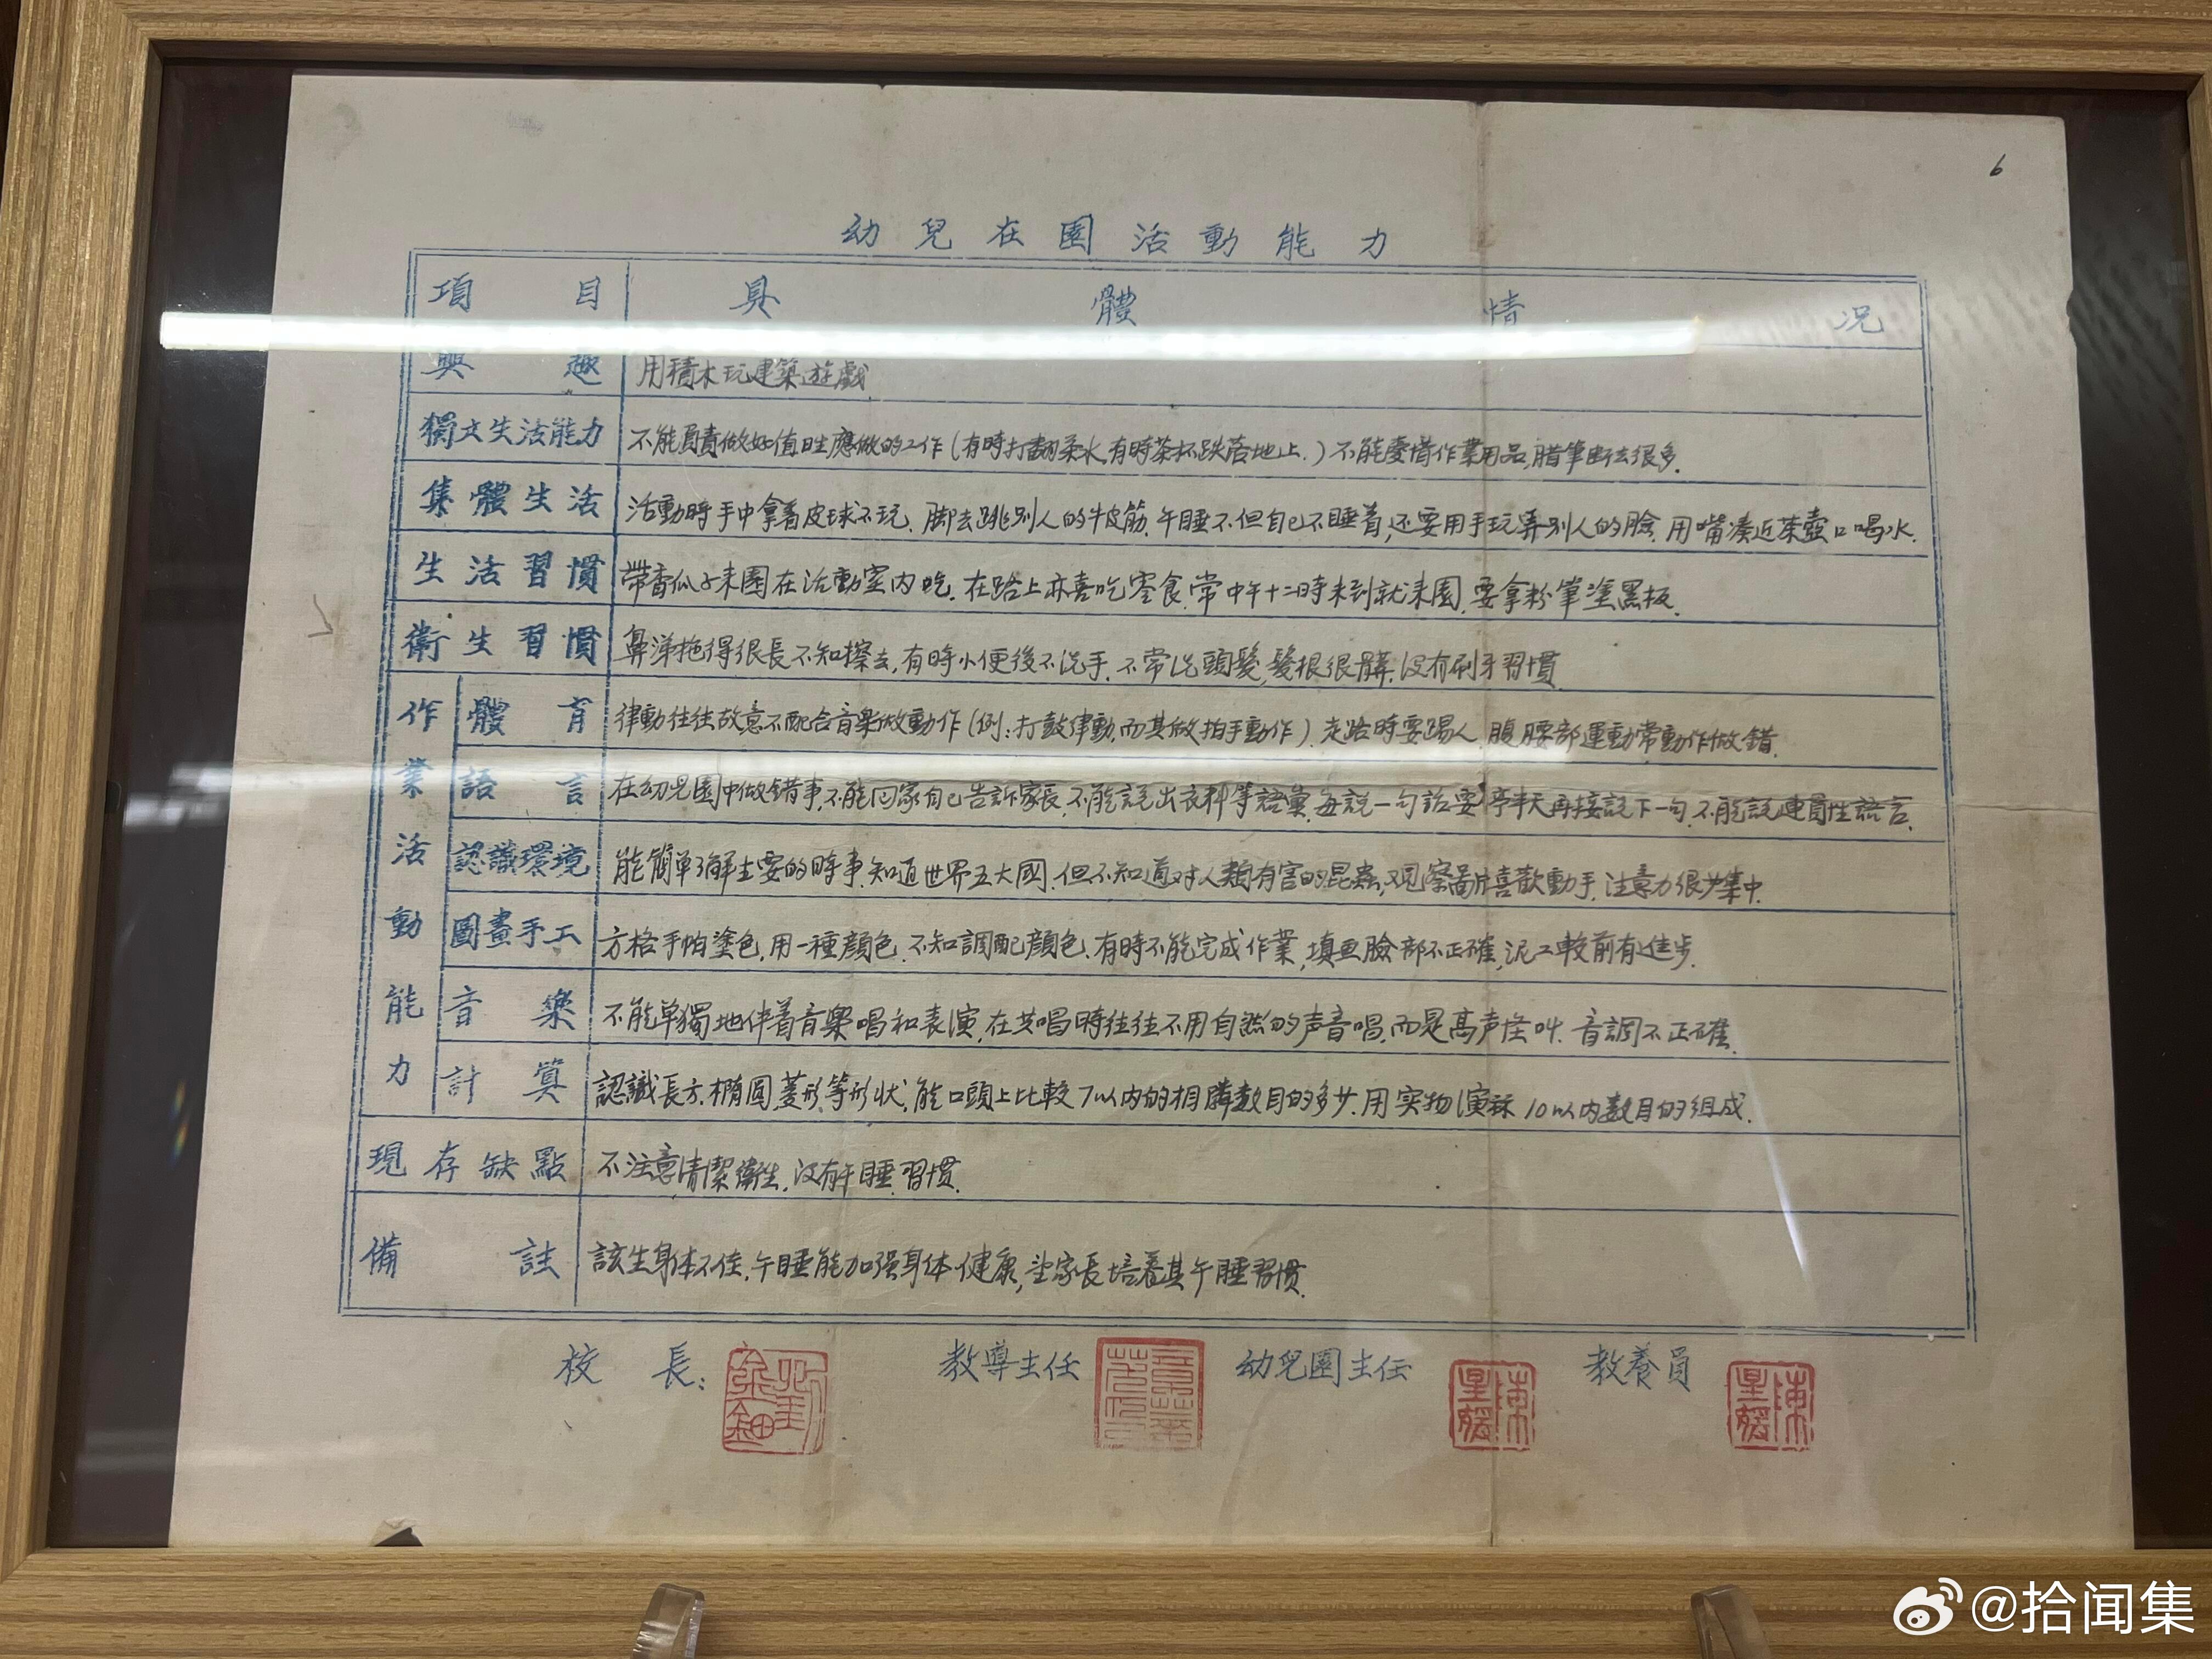 6
幼兒在園活動能力
項目 具體情况
興趣 用積木玩建築遊戲
獨立生活能力 不能負責做好值日生應做的工作(有時打翻茶水,有時茶杯跌落地上.)不能愛惜作業用品,腊筆断去很多.
集體生活 活動時手中拿着皮球不玩.脚去跳别人的牛皮筋.午睡不但自己不睡着,还要用手玩弄别人的臉.用嘴凑近茶壺口喝水.
生活習慣 帶香瓜子来園在活動室内吃.在路上亦喜吃零食.常中午十二時未到就来園.要拿粉筆塗黑板.
衛生習慣 鼻涕拖得很長不知擦去,有時小便後不洗手.不常洗頭髮,髮根很髒.没有刷牙習慣
作業活動能力
體育 律動往往故意不配合音樂做動作(例:打鼓律動,而其做拍手動作).走路時要踢人.腹腰部運動常動作做錯.
語言 在幼兒園中做錯事,不能回家自己告訴家長,不能說出衣料等語彙.每説一句話要停半天再接説下一句.不能説連貫性語言.
認識環境 能簡單了解主要的時事.知道世界五大國.但不知道对人類有害的昆蟲,观察圖片喜歡動手.注意力很少集中.
圖畫手工 方格手帕塗色,用一種顔色.不知調配顔色.有時不能完成作業,填画臉部不正確,泥工較前有進步.
音樂 不能单獨地伴着音樂唱和表演.在共唱時往往不用自然的声音唱.而是高声怪叫.音調不正確.
計算 認識長方.橢圓.菱形等形状,能口頭上比較7以内的相隣數目的多少.用实物演示10以内数目的组成.
現存缺點 不注意清潔衛生.没有午睡習慣.
備註 該生身体不佳.午睡能加强身体健康,望家長培養其午睡習慣.
校長: 教導主任 幼兒園主任 教養員
陳星媛 陳星媛
@拾闻集